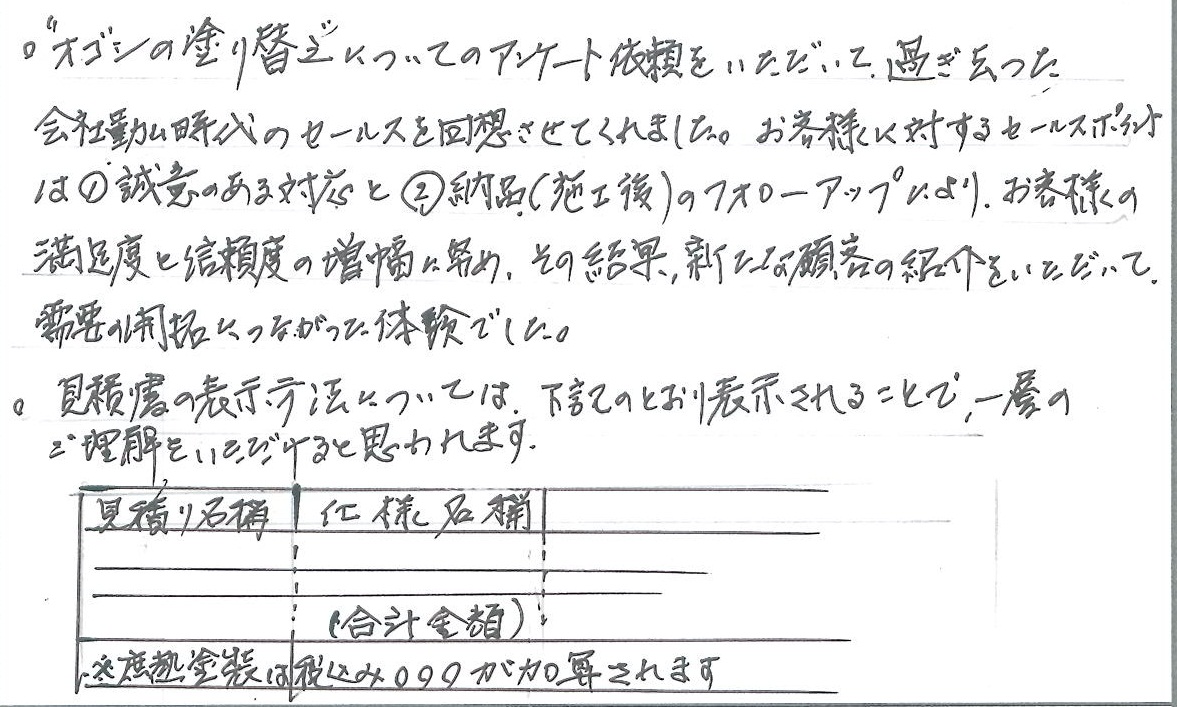 ○“オゴシの塗り替え”についてのアンケート依頼をいただいて、過ぎ去った
会社勤ム時代のセールスを回想させてくれました。お客様に対するセールスポイント
は①誠意のある対応と②納品(施工後)のフォローアップにより、お客様の
満足度と信頼度の増幅に努め、その結果、新たな顧客の紹介をいただいて、
需要の開拓につながった体験でした。
○ 見積書の表示方法については、下記のとおり表示されることで、一層の
ご理解をいただけると思われます。
見積り名称 仕様名称
(合計金額)
※庶熱塗装は税込み〇〇〇が加算されます